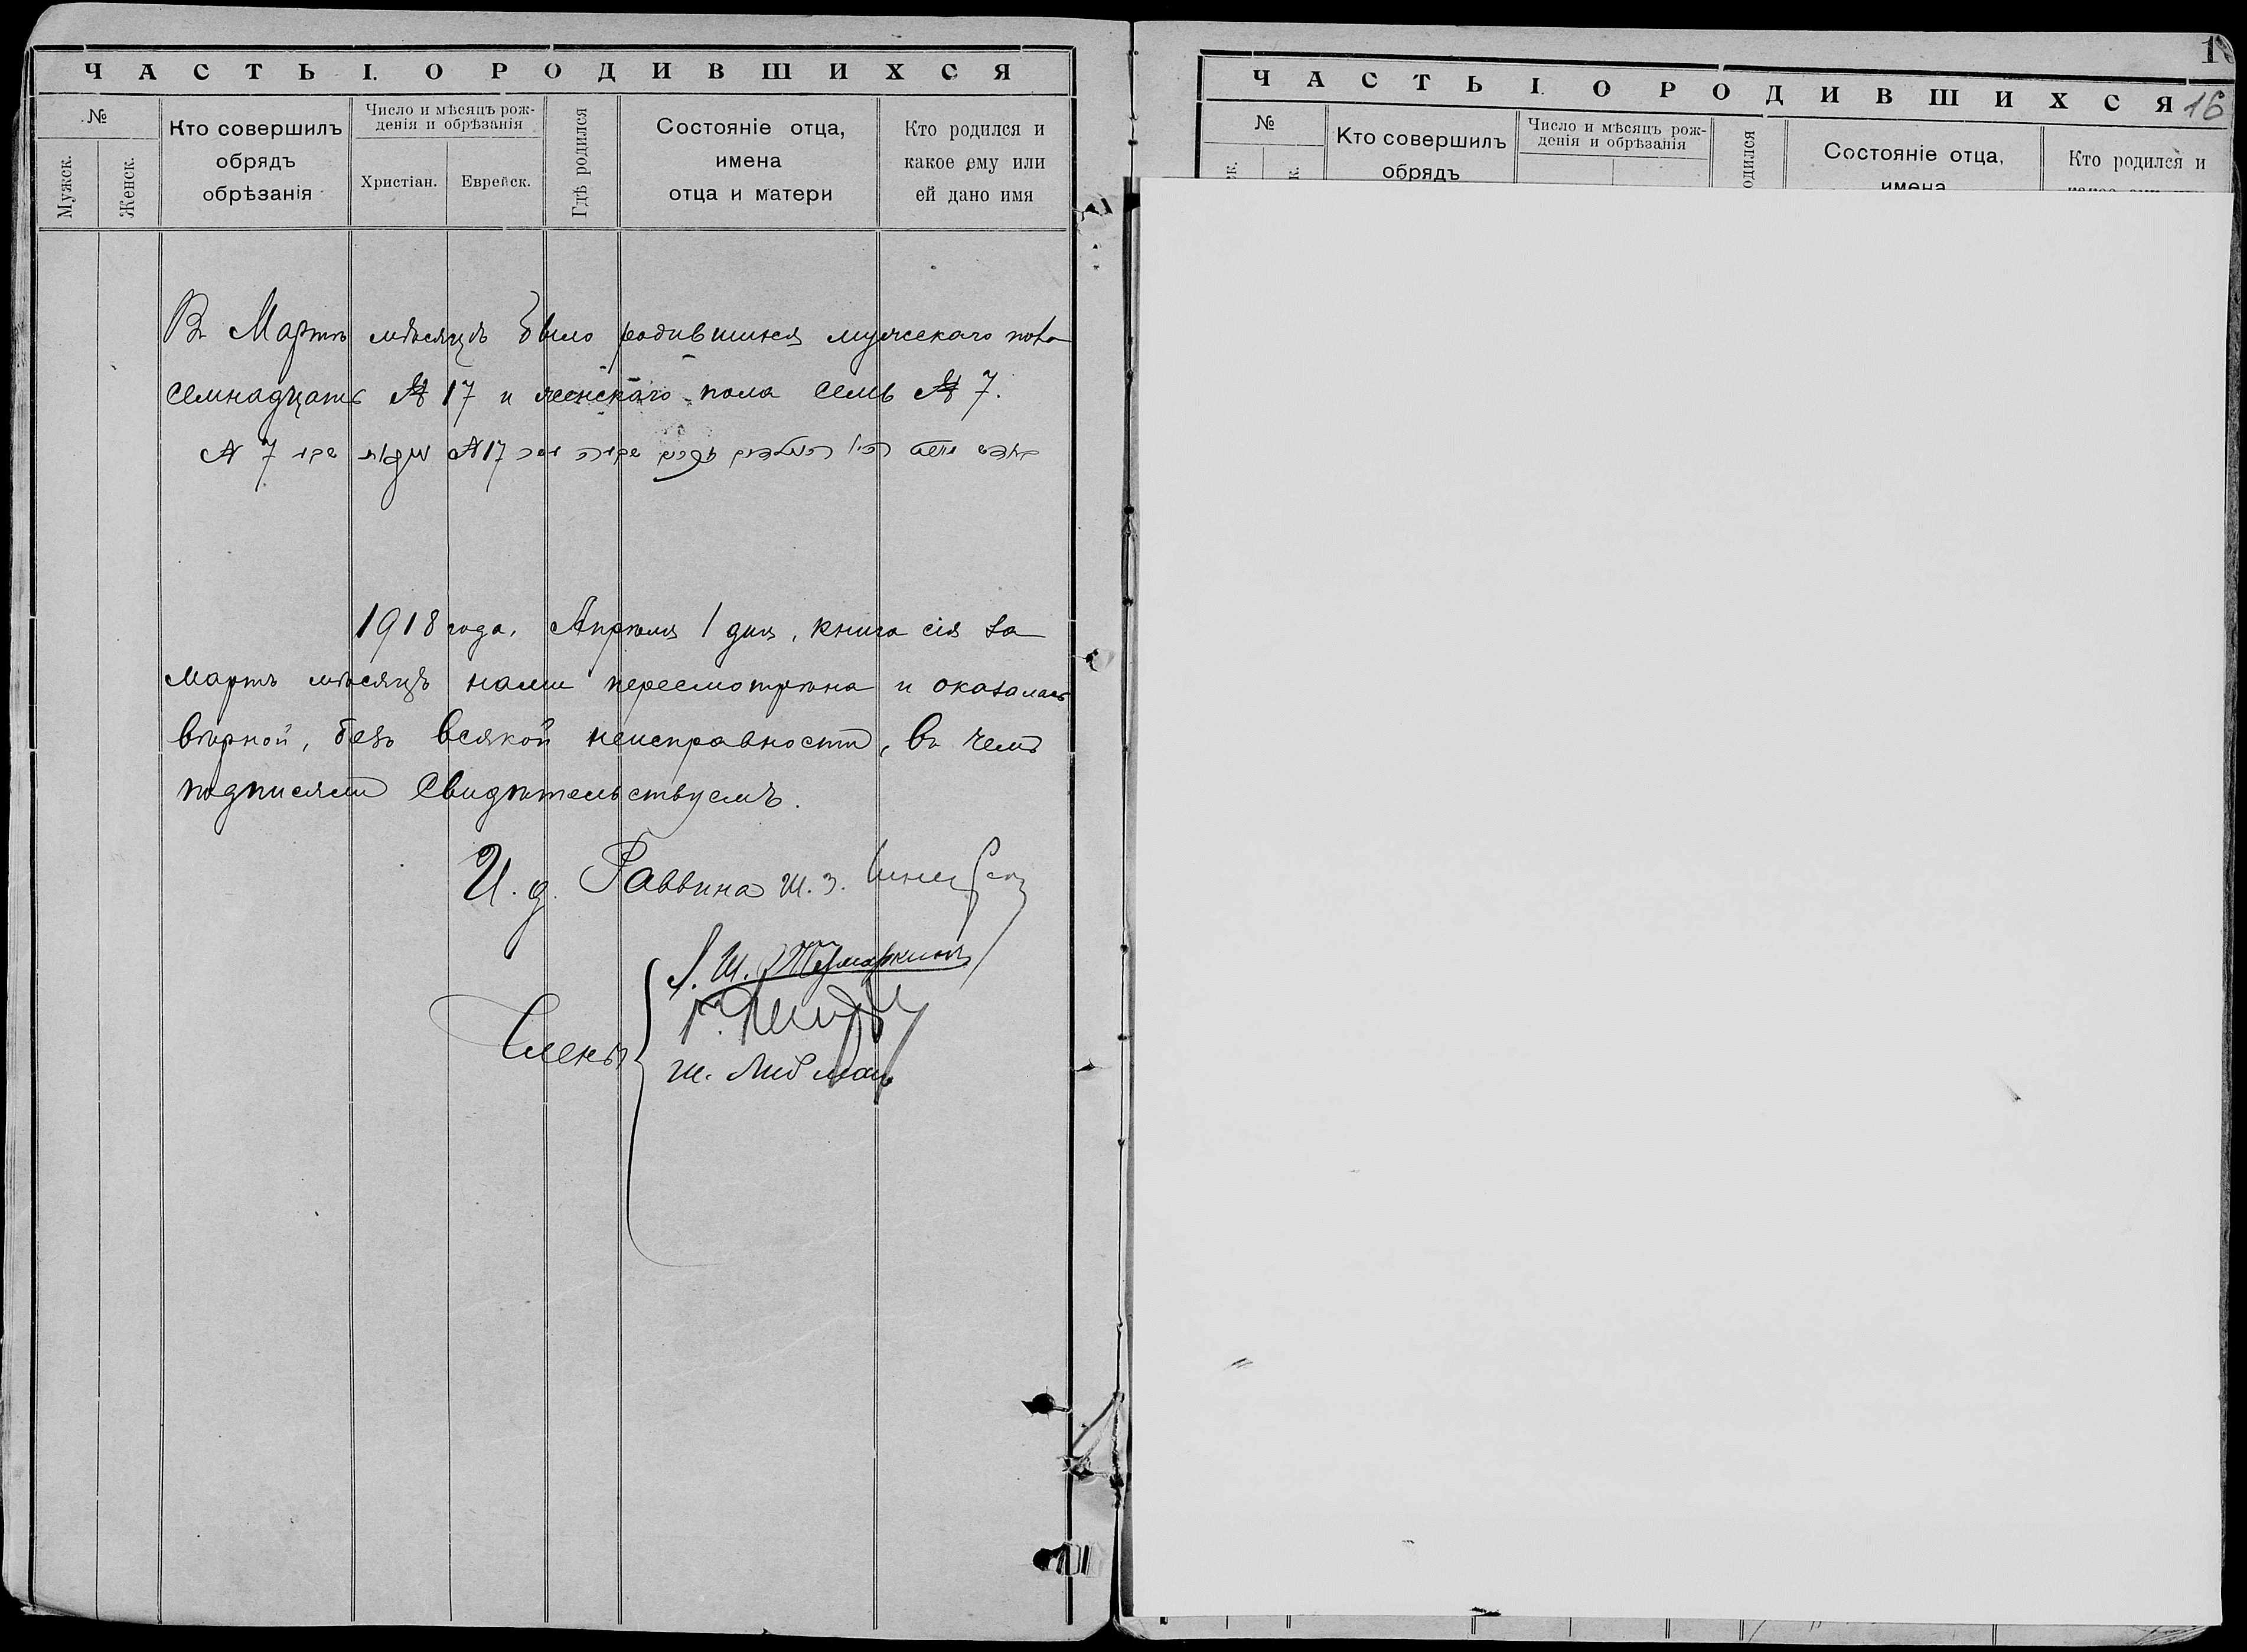 ЧАСТЬ I. О РОДИВШИХСЯ
№
Мужск.
Женск.
Кто совершилъ
обрядъ
обрѣзанія
Число и мѣсяцъ рож-
денія и обрѣзанія
Христіан.
Еврейск.
Гдѣ родился
Состояніе отца,
имена
отца и матери
Кто родился и
какое ему или
ей дано имя
Въ Мартѣ мѣсяцѣ было родившихся мужскаго пола
семнадцать № 17 и женскаго пола семь № 7.
№ 17 № 7
1918 года, Апрѣля 1 дня, книга сія за
мартъ мѣсяцъ нами пересмотрѣна и оказалась
вѣрной, безъ всякой неисправности, въ чемъ
подписями свидѣтельствуемъ.
И. д. Раввина Ш. З.
Члены
Ш. Либманъ
ЧАСТЬ I. О РОДИВШИХСЯ
16
№
Кто совершилъ
обрядъ
Число и мѣсяцъ рож-
денія и обрѣзанія
Состояніе отца,
имена
Кто родился и